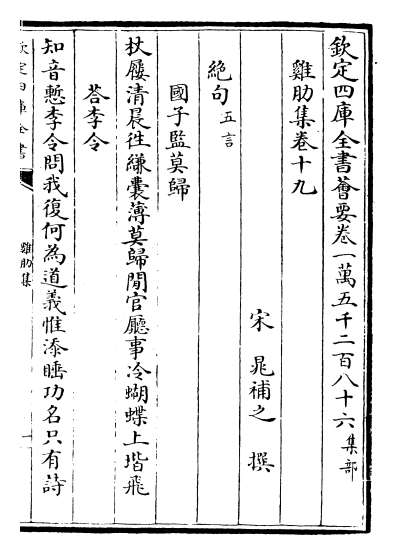 欽定四庫全書薈要卷一萬五千二百八十六集部
雞肋集卷十九
宋 晁補之 撰
絶句五言
國子監莫歸
杖屨清晨徃縑囊薄莫歸閒官廳事冷蝴蝶上堦飛
荅李令
知音慙李令問我復何為道義惟添睡功名只有詩
欽定四庫全書
雞肋集
一